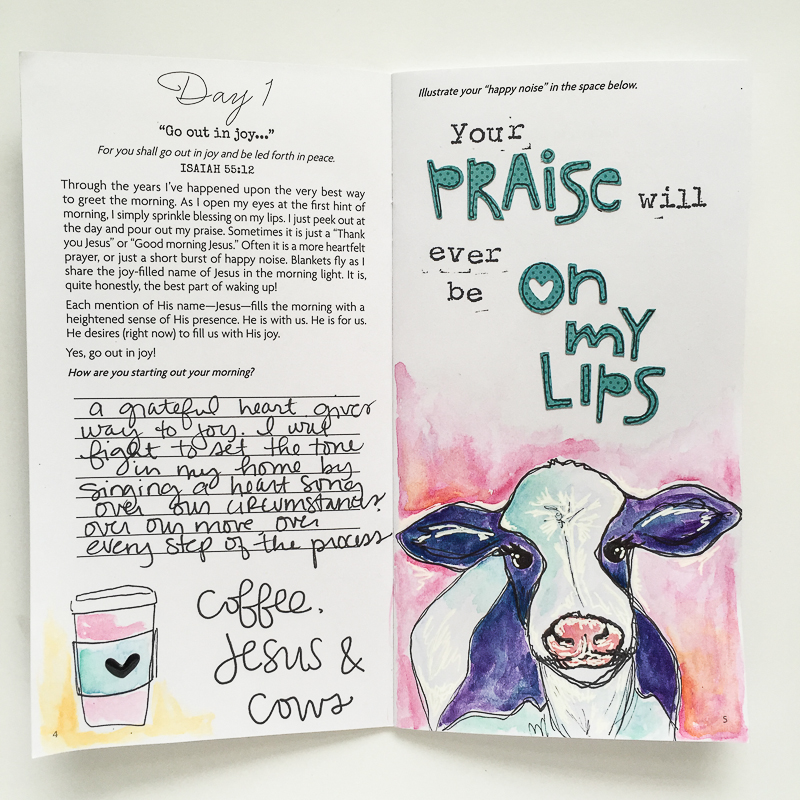 Day 1
"Go out in joy..."
For you shall go out in joy and be led forth in peace.
ISAIAH 55:12
Through the years I've happened upon the very best way
to greet the morning. As I open my eyes at the first hint of
morning, I simply sprinkle blessing on my lips. I just peek out at
the day and pour out my praise. Sometimes it is just a "Thank
you Jesus" or "Good morning Jesus." Often it is a more heartfelt
prayer, or just a short burst of happy noise. Blankets fly as I
share the joy-filled name of Jesus in the morning light. It is,
quite honestly, the best part of waking up!
Each mention of His name—Jesus—fills the morning with a
heightened sense of His presence. He is with us. He is for us.
He desires (right now) to fill us with His joy.
Yes, go out in joy!
How are you starting out your morning?
a grateful heart gives
way to joy. I will
fight to set the tone
in my home by
singing a heart song
over our circumstances.
over our move over
every step of the process
coffee.
Jesus &
cows
4
Illustrate your "happy noise" in the space below.
Your
PRAISE will
ever
be On
my
LIPS
5